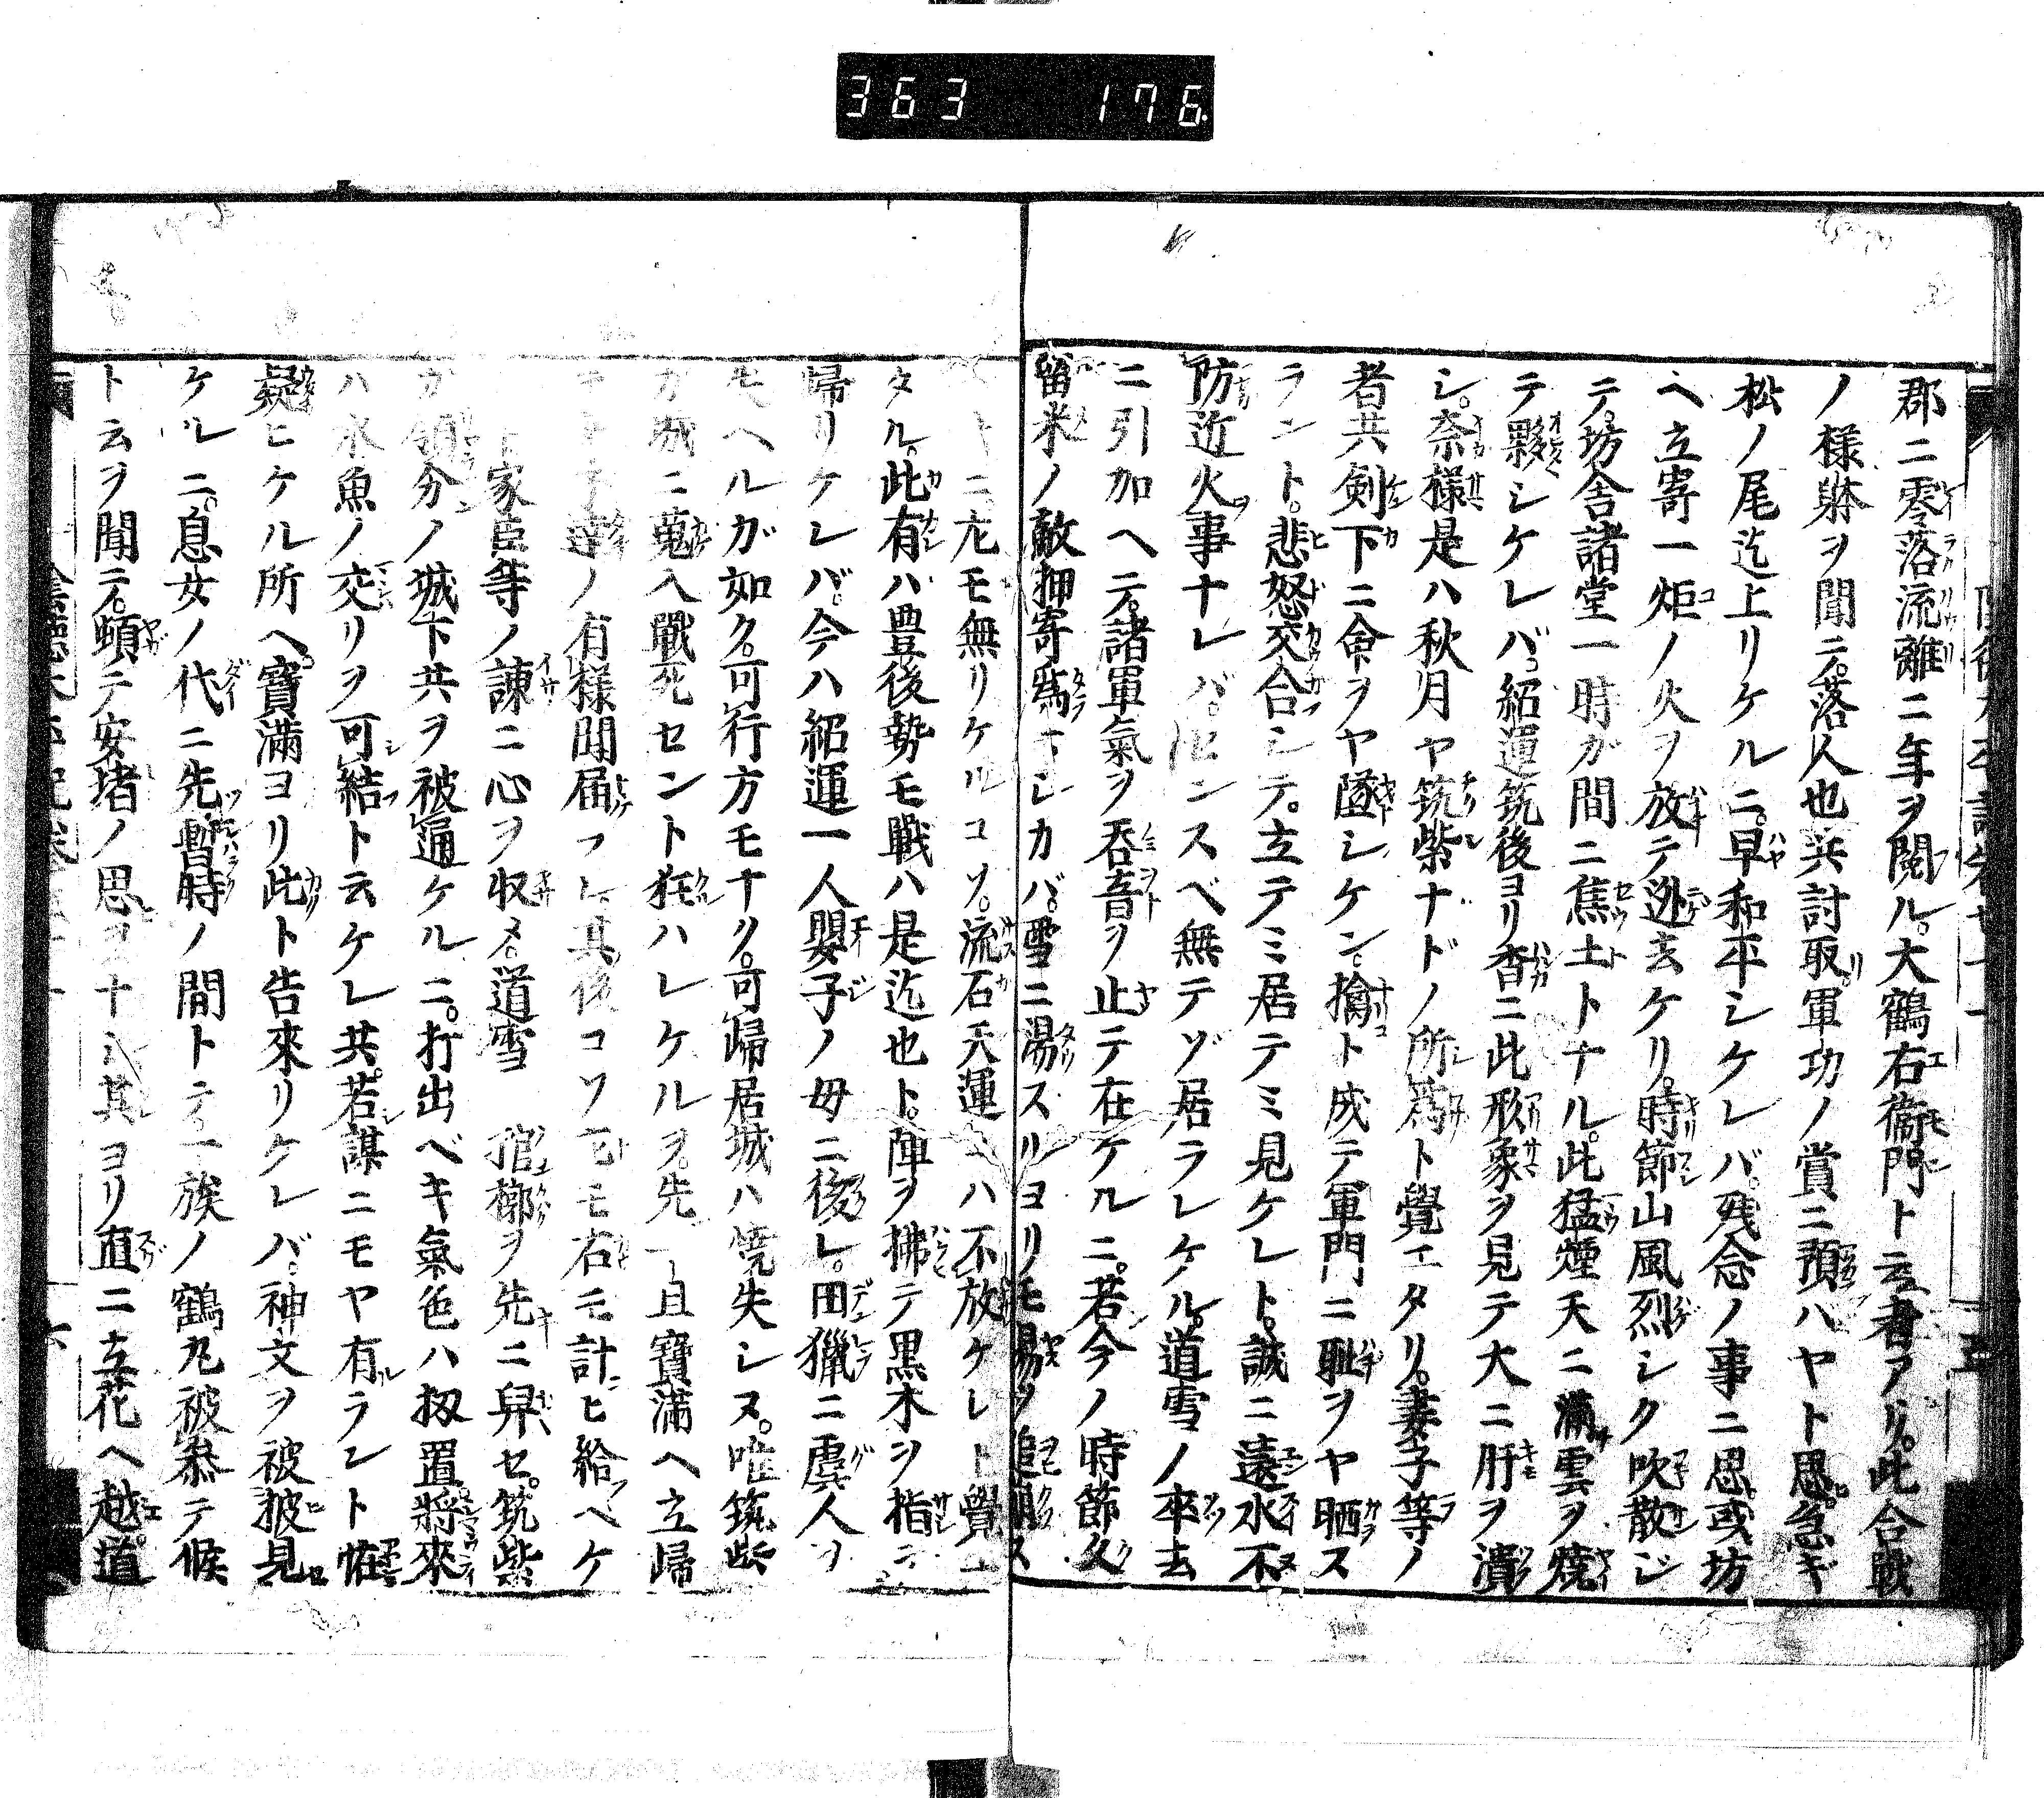 363 176
郡ニ零落流離ニ年ヲ閲ル。大鶴右衞門ト云者アリ。此合戰
ノ樣躰ヲ聞テ。落人也共討取。軍功ノ賞ニ預ハヤト思。急ギ
松ノ尾迄上リケルニ。早和平シケレバ。残念ノ事ニ思。或坊
ヘ立寄一炬ノ火ヲ放テ迯去ケリ。時節山風烈シク吹散ジ
テ。坊舎諸堂一時ガ間ニ焦土トナル。此猛煙天ニ滿雲ヲ燒
テ夥シケレバ。紹運筑後ヨリ杳ニ此形象ヲ見テ大ニ肝ヲ潰
シ。奈樣是ハ秋月ヤ筑紫ナドノ所爲ト覺エタリ。妻子等ノ
者共剣下ニ命ヲヤ墜シケン。擒ト成テ軍門ニ耻ヲヤ晒ス
ラント。悲怒交合シテ。立テミ居テミ見ケレト。誠ニ遠水不
防近火事ナレバ。センスベ無テゾ居ラレケル。道雪ノ卒去
ニ引加ヘテ。諸軍氣ヲ呑音ヲ止テ在ケルニ。若今ノ時節久
留米ノ敵押寄爲ナシカバ。雪ニ湯スリヨリモ易ク追崩ス
トニ。尤モ無リケルコソ。流石天運ハ不放ケレト覺エ
タル。此有ハ豊後勢モ戰ハ是迄也ト。陣ヲ拂テ黒木ヲ指テ
帰リケレバ。今ハ紹運一人嬰子ノ母ニ後レ。田獵ニ虞人ヲ
モヘルガ如ク。可行方モナリ。可歸居城ハ焼失シヌ。唯筑紫
カ城ニ蒐入戰死セント狂ハレケルヲ。先一旦寶滿ヘ立帰
子達ノ有樣聞届フレ其後コソ モ右モ計ヒ給ヘケ
ト家臣等ノ諫ニ心ヲ収メ。道雪 棺槨ヲ先ニ舁セ。筑紫
カ領分ノ城下共ヲ被通ケルニ。打出ベキ氣色ハ扨置。將來
ハ水魚ノ交リヲ可結ト云ケレ共。若謀ニモヤ有ラント恠
疑ヒケル所ヘ。寶滿ヨリ此ト告來リケレバ。神文ヲ被披見
ケルニ。息女ノ代ニ先暫時ノ間トテ一族ノ鶴丸被参テ候
ト云ヲ聞テ。頓テ安堵ノ思ヲナシ其ヨリ直ニ立花ヘ越。道